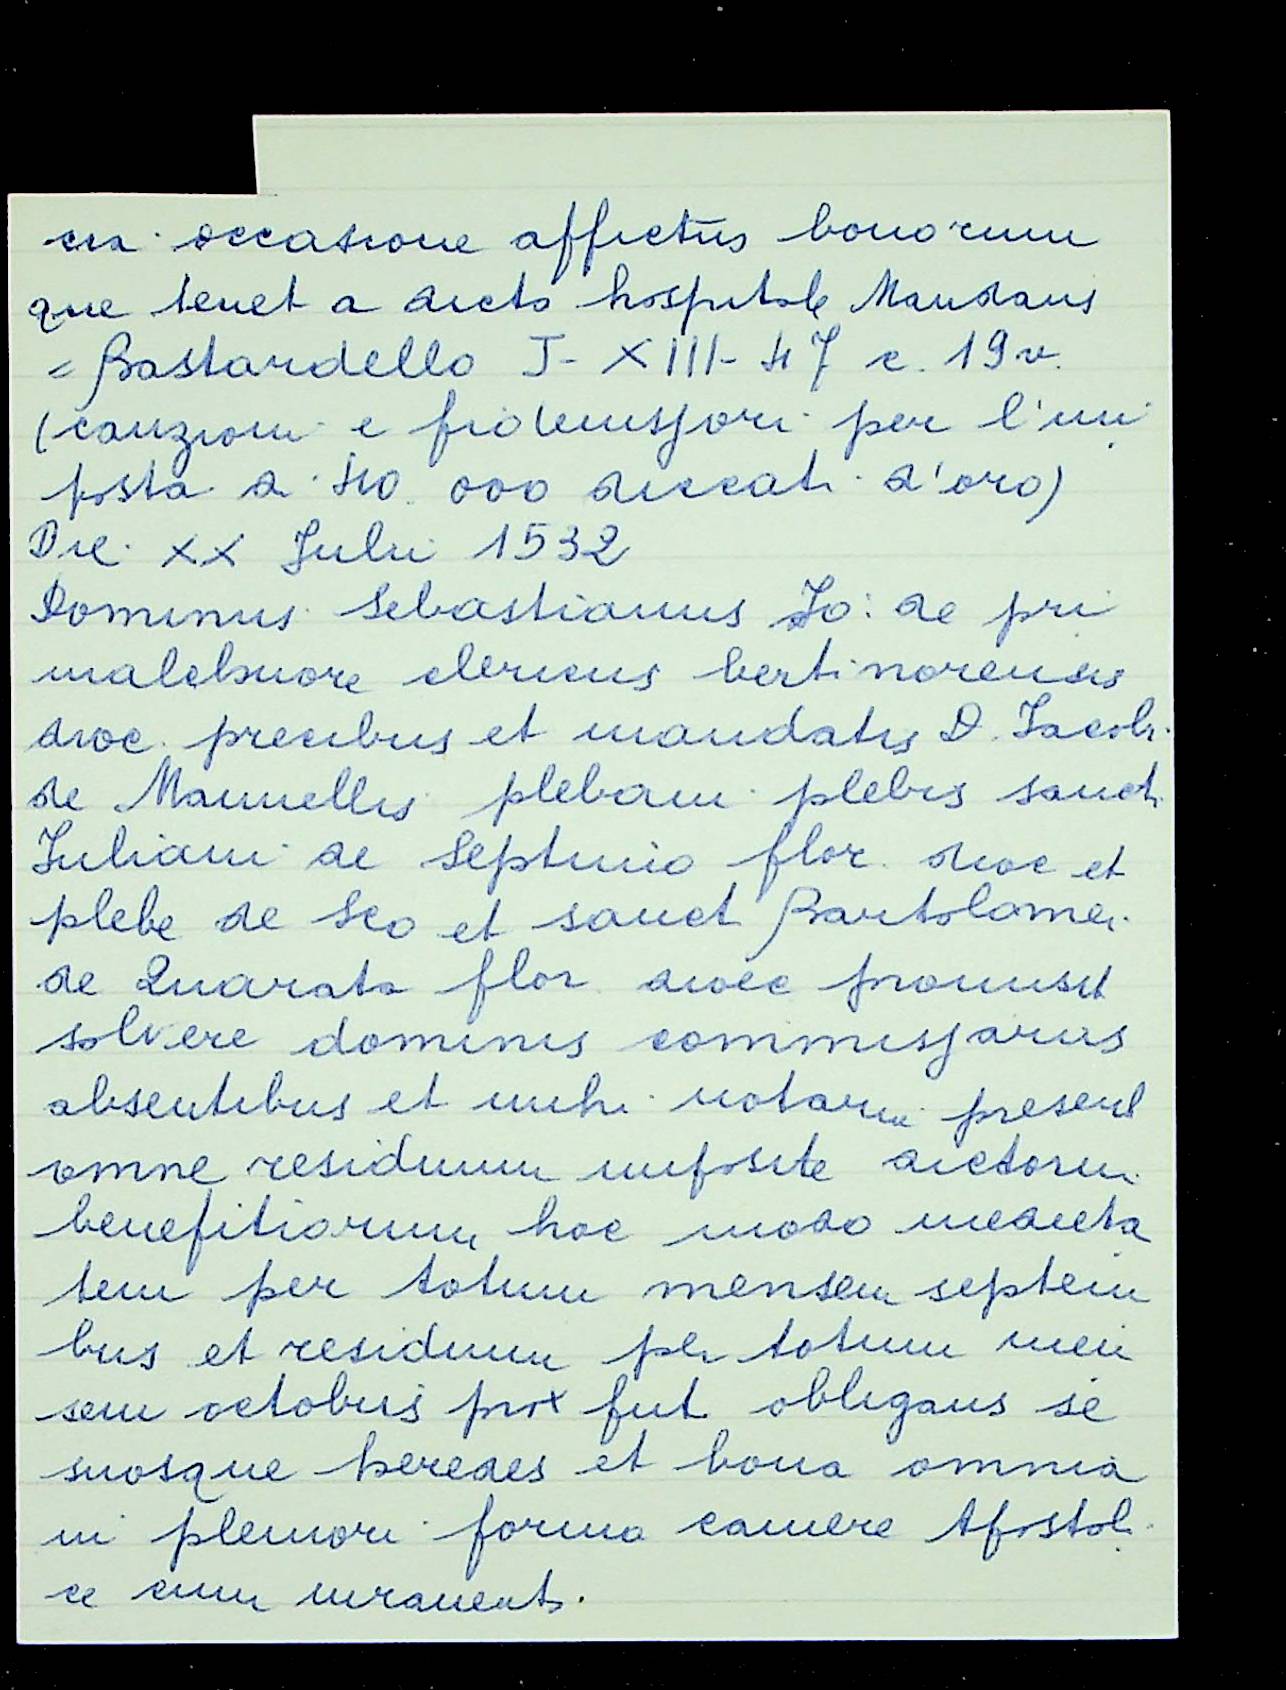 cia occasione affictus bonorum
que tenet a dicto hospitale Mandans
= Bastardello J- XIII- 47 c. 19 v.
(cauzioni e fideiussori per l'im
posta di 40.000 ducati d'oro)
Die XX Julii 1532
Dominus Sebastianus Jo: de pri
malchuore clericus bertinorensis
dioc. precibus et mandatis D. Jacobi
de Mannellis plebani plebis sancti
Juliani de Septimo flor. dioc et
plebe de Sco et sanct Bartolomei
de Quarata flor dioec promisit
solvere dominis commissariis
absentibus et mihi notario present
omne residuum imposite dictorum
benefitiorum hoc modo medieta
tem per totum mensem septem
bris et residuum per totum men
sem octobris prox fut obligans se
suosque heredes et bona omnia
in pleniori forma camere Apostoli
ce cum iurament.